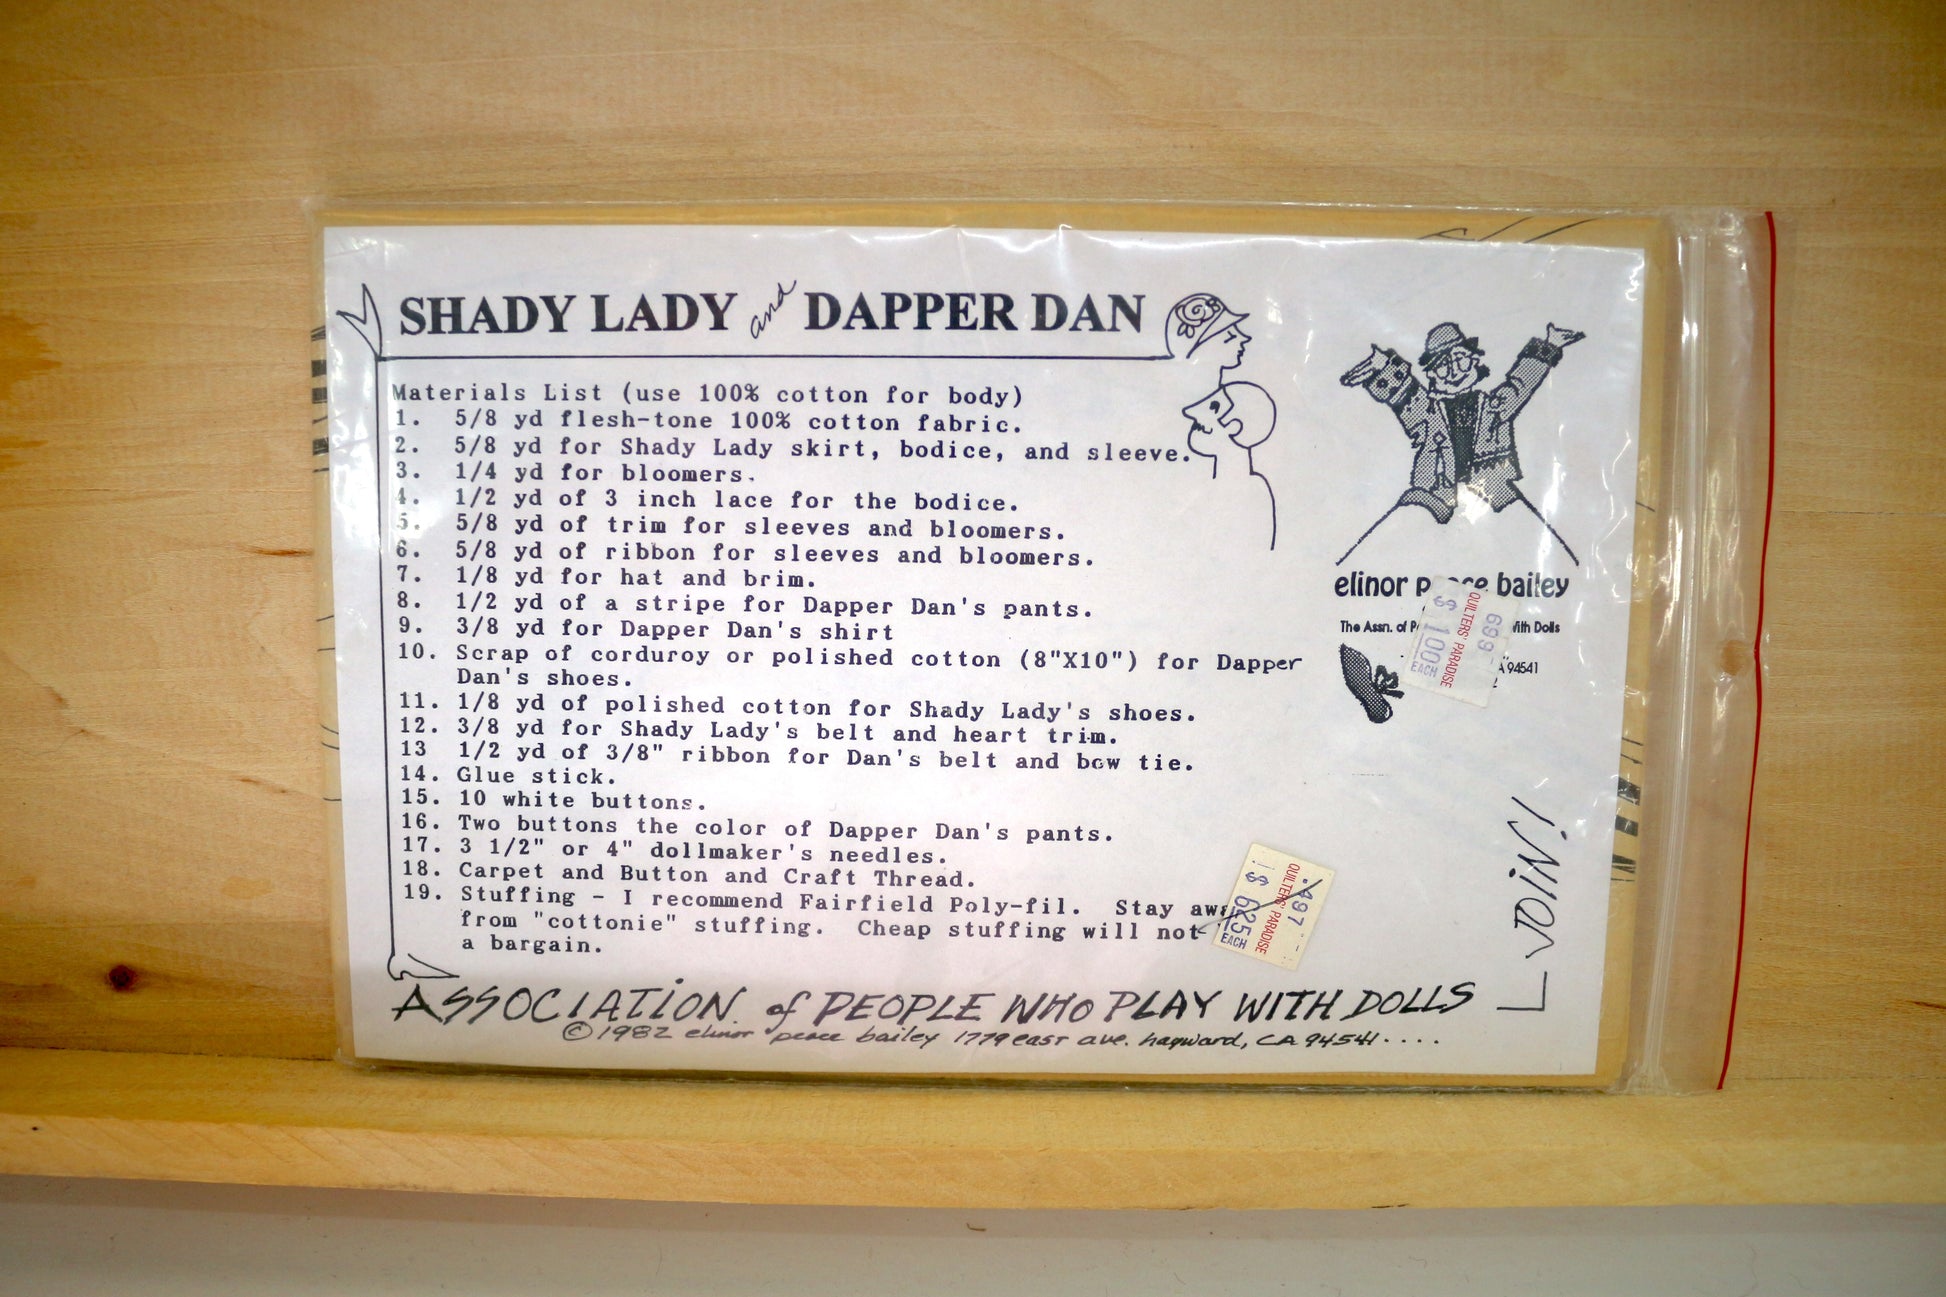 SHADY LADY and DAPPER DAN
Materials List (use 100% cotton for body)
1. 5/8 yd flesh-tone 100% cotton fabric.
2. 5/8 yd for Shady Lady skirt, bodice, and sleeve.
3. 1/4 yd for bloomers.
4. 1/2 yd of 3 inch lace for the bodice.
5. 5/8 yd of trim for sleeves and bloomers.
6. 5/8 yd of ribbon for sleeves and bloomers.
7. 1/8 yd for hat and brim.
8. 1/2 yd of a stripe for Dapper Dan's pants.
9. 3/8 yd for Dapper Dan's shirt
10. Scrap of corduroy or polished cotton (8"X10") for Dapper
Dan's shoes.
11. 1/8 yd of polished cotton for Shady Lady's shoes.
12. 3/8 yd for Shady Lady's belt and heart trim.
13 1/2 yd of 3/8" ribbon for Dan's belt and bow tie.
14. Glue stick.
15. 10 white buttons.
16. Two buttons the color of Dapper Dan's pants.
17. 3 1/2" or 4" dollmaker's needles.
18. Carpet and Button and Craft Thread.
19. Stuffing - I recommend Fairfield Poly-fil. Stay
from "cottonie" stuffing. Cheap stuffing will not
a bargain.
ASSOCIATION of PEOPLE WHO PLAY WITH DOLLS
©1982 elinor peace bailey 1779 east ave. hayward, CA 94541....
elinor bailey
The Assn. of With Dolls
94541
699
QUILTERS' PARADISE
$ 100
EACH
.497
QUILTERS' PARADISE
$ 625
EACH
JOIN!